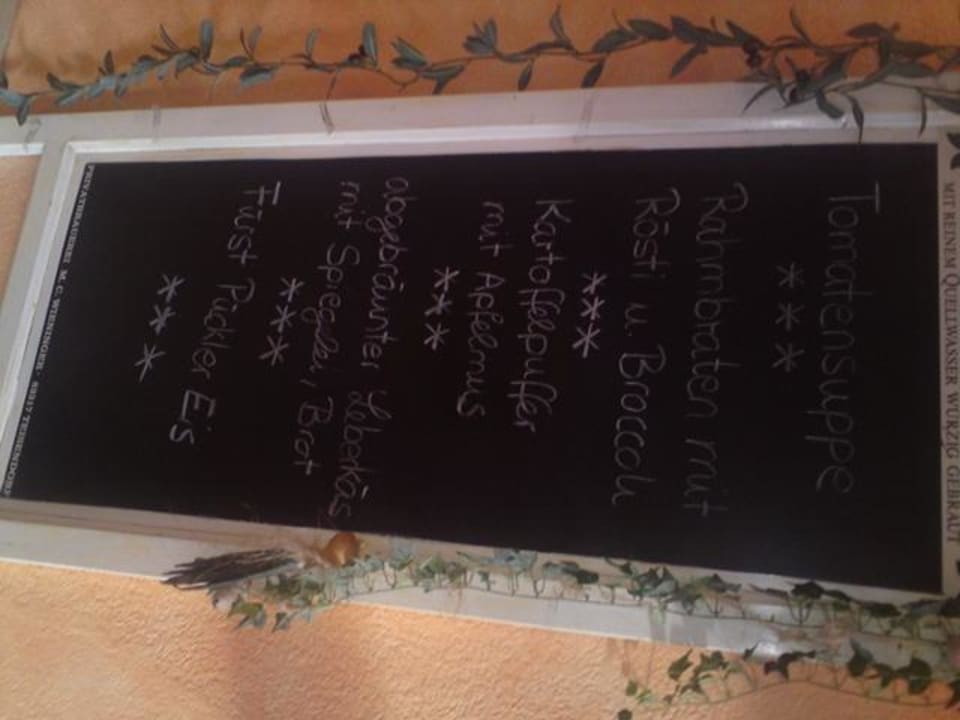 MIT REINEM QUELLWASSER WÜRZIG GEBRAUT
Tomatensuppe
***
Rahmbraten mit
Rösti u. Broccoli
***
Kartoffelpuffer
mit Apfelmus
***
abgebräunter Leberkäs
mit Spiegelei, Brot
***
Fürst Pückler Eis
***
PRIVATBRAUEREI M.C. WIENINGER · 83317 TEISENDORF